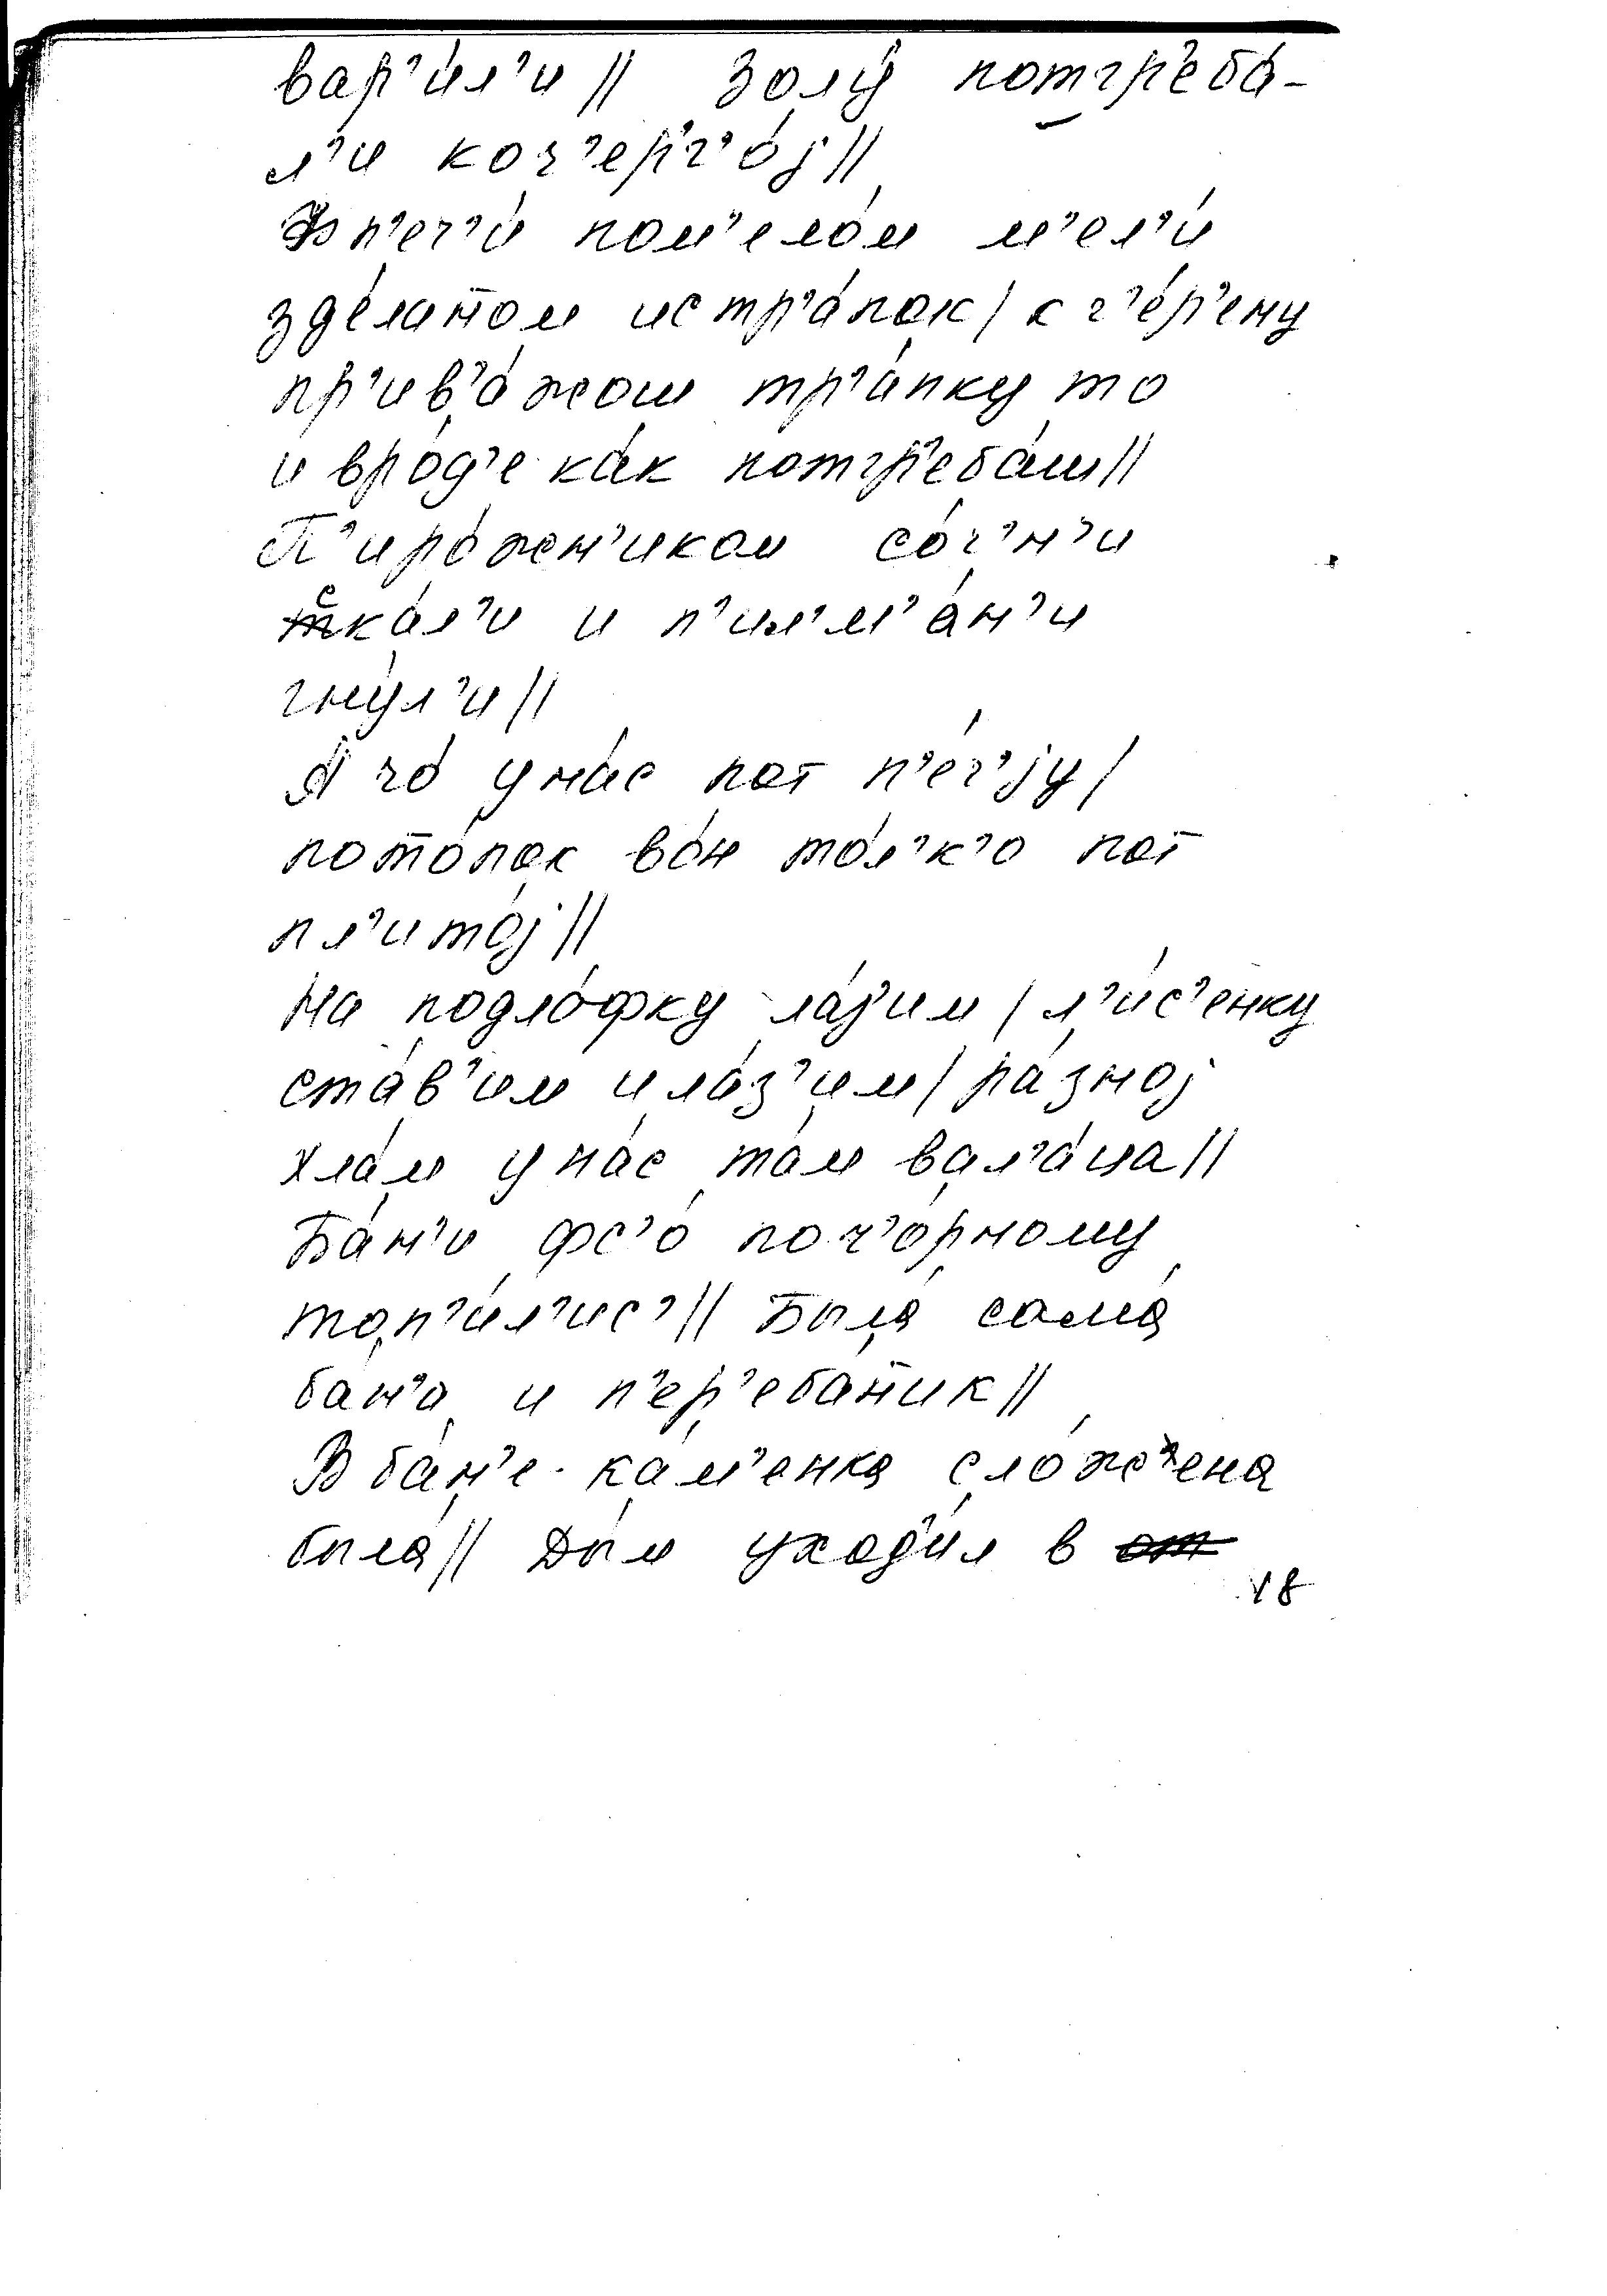 вар’и́л’и || золу́ потгр’еба́-
л’и коч’ер’г’о́j ||
В п’еч’и́ пом’ело́м м’ел’и́
зде́лан̄ом истр’а́пок | к ч’е́р’ену
пр’ив’а́жош тр’а́пку то
и вро́д’е ка́к потгр’еба́ш ||
П’иро́жн’иком со́ч’н’и
ска́л’и и п’ил’м’а́н’и
гну́л’и ||
А чо́ у на́с пот п’е́ч’jу |
пото́пок во́н то́л’к’о пот
пл’ито́j ||
На подло́фку ла́з’им | л’и́с’енку
ста́в’им и ла́з’им | ра́зноj
хла́м у на́с та́м вал’а́ца ||
Ба́н’и фс’о́ поч’о́рному
топ’и́л’ис’ || Была́ сама́
ба́н’а и п’ер’еба́н̄ик ||
В ба́н’е кам’енка сло́жена
была́ || Ды́м уход’и́л в о̶т̶
18